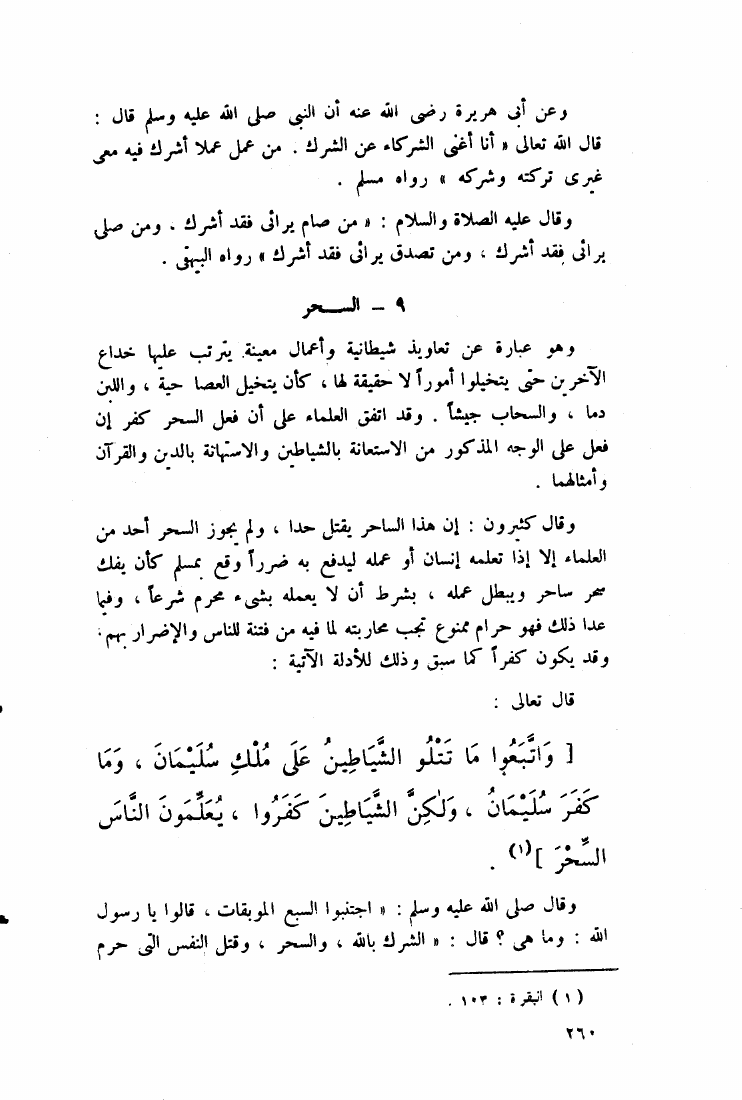 وعن أبى هريرة رضى الله عنه أن النبى صلى الله عليه وسلم قال :
قال الله تعالى « أنا أغنى الشركاء عن الشرك . من عمل عملا أشرك فيه معى
غيرى تركته وشركه » رواه مسلم .
وقال عليه الصلاة والسلام : « من صام يرائى فقد أشرك ، ومن صلى
يرائى فقد أشرك ، ومن تصدق يرائى فقد أشرك » رواه البيهقى .
٩ – الســحر
وهو عبارة عن تعاويذ شيطانية وأعمال معينة يترتب عليها خداع
الآخرين حتى يتخيلوا أموراً لا حقيقة لها ، كأن يتخيل العصا حية ، واللبن
دما ، والسحاب جيشاً . وقد اتفق العلماء على أن فعل السحر كفر إن
فعل على الوجه المذكور من الاستعانة بالشياطين والاستهانة بالدين والقرآن
وأمثالهما .
وقال كثيرون : إن هذا الساحر يقتل حدا ، ولم يجوز السحر أحد من
العلماء إلا إذا تعلمه إنسان أو عمله ليدفع به ضرراً وقع بمسلم كأن يفك
سحر ساحر ويبطل عمله ، بشرط أن لا يعمله بشىء محرم شرعاً ، وفيما
عدا ذلك فهو حرام ممنوع تجب محاربته لما فيه من فتنة للناس والإضرار بهم ،
وقد يكون كفراً كما سبق وذلك للأدلة الآتية :
قال تعالى :
[ وَاتَّبَعُوا مَا تَتْلُو الشَّيَاطِينُ عَلَى مُلْكِ سُلَيْمَانَ ، وَمَا
كَفَرَ سُلَيْمَانُ ، وَلَٰكِنَّ الشَّيَاطِينَ كَفَرُوا ، يُعَلِّمُونَ النَّاسَ
السِّحْرَ ] (١) .
وقال صلى الله عليه وسلم : « اجتنبوا السبع الموبقات ، قالوا يا رسول
الله : وما هى ؟ قال : « الشرك بالله ، والسحر ، وقتل النفس التى حرم
(١) البقرة : ١٠٣ .
٢٦٠